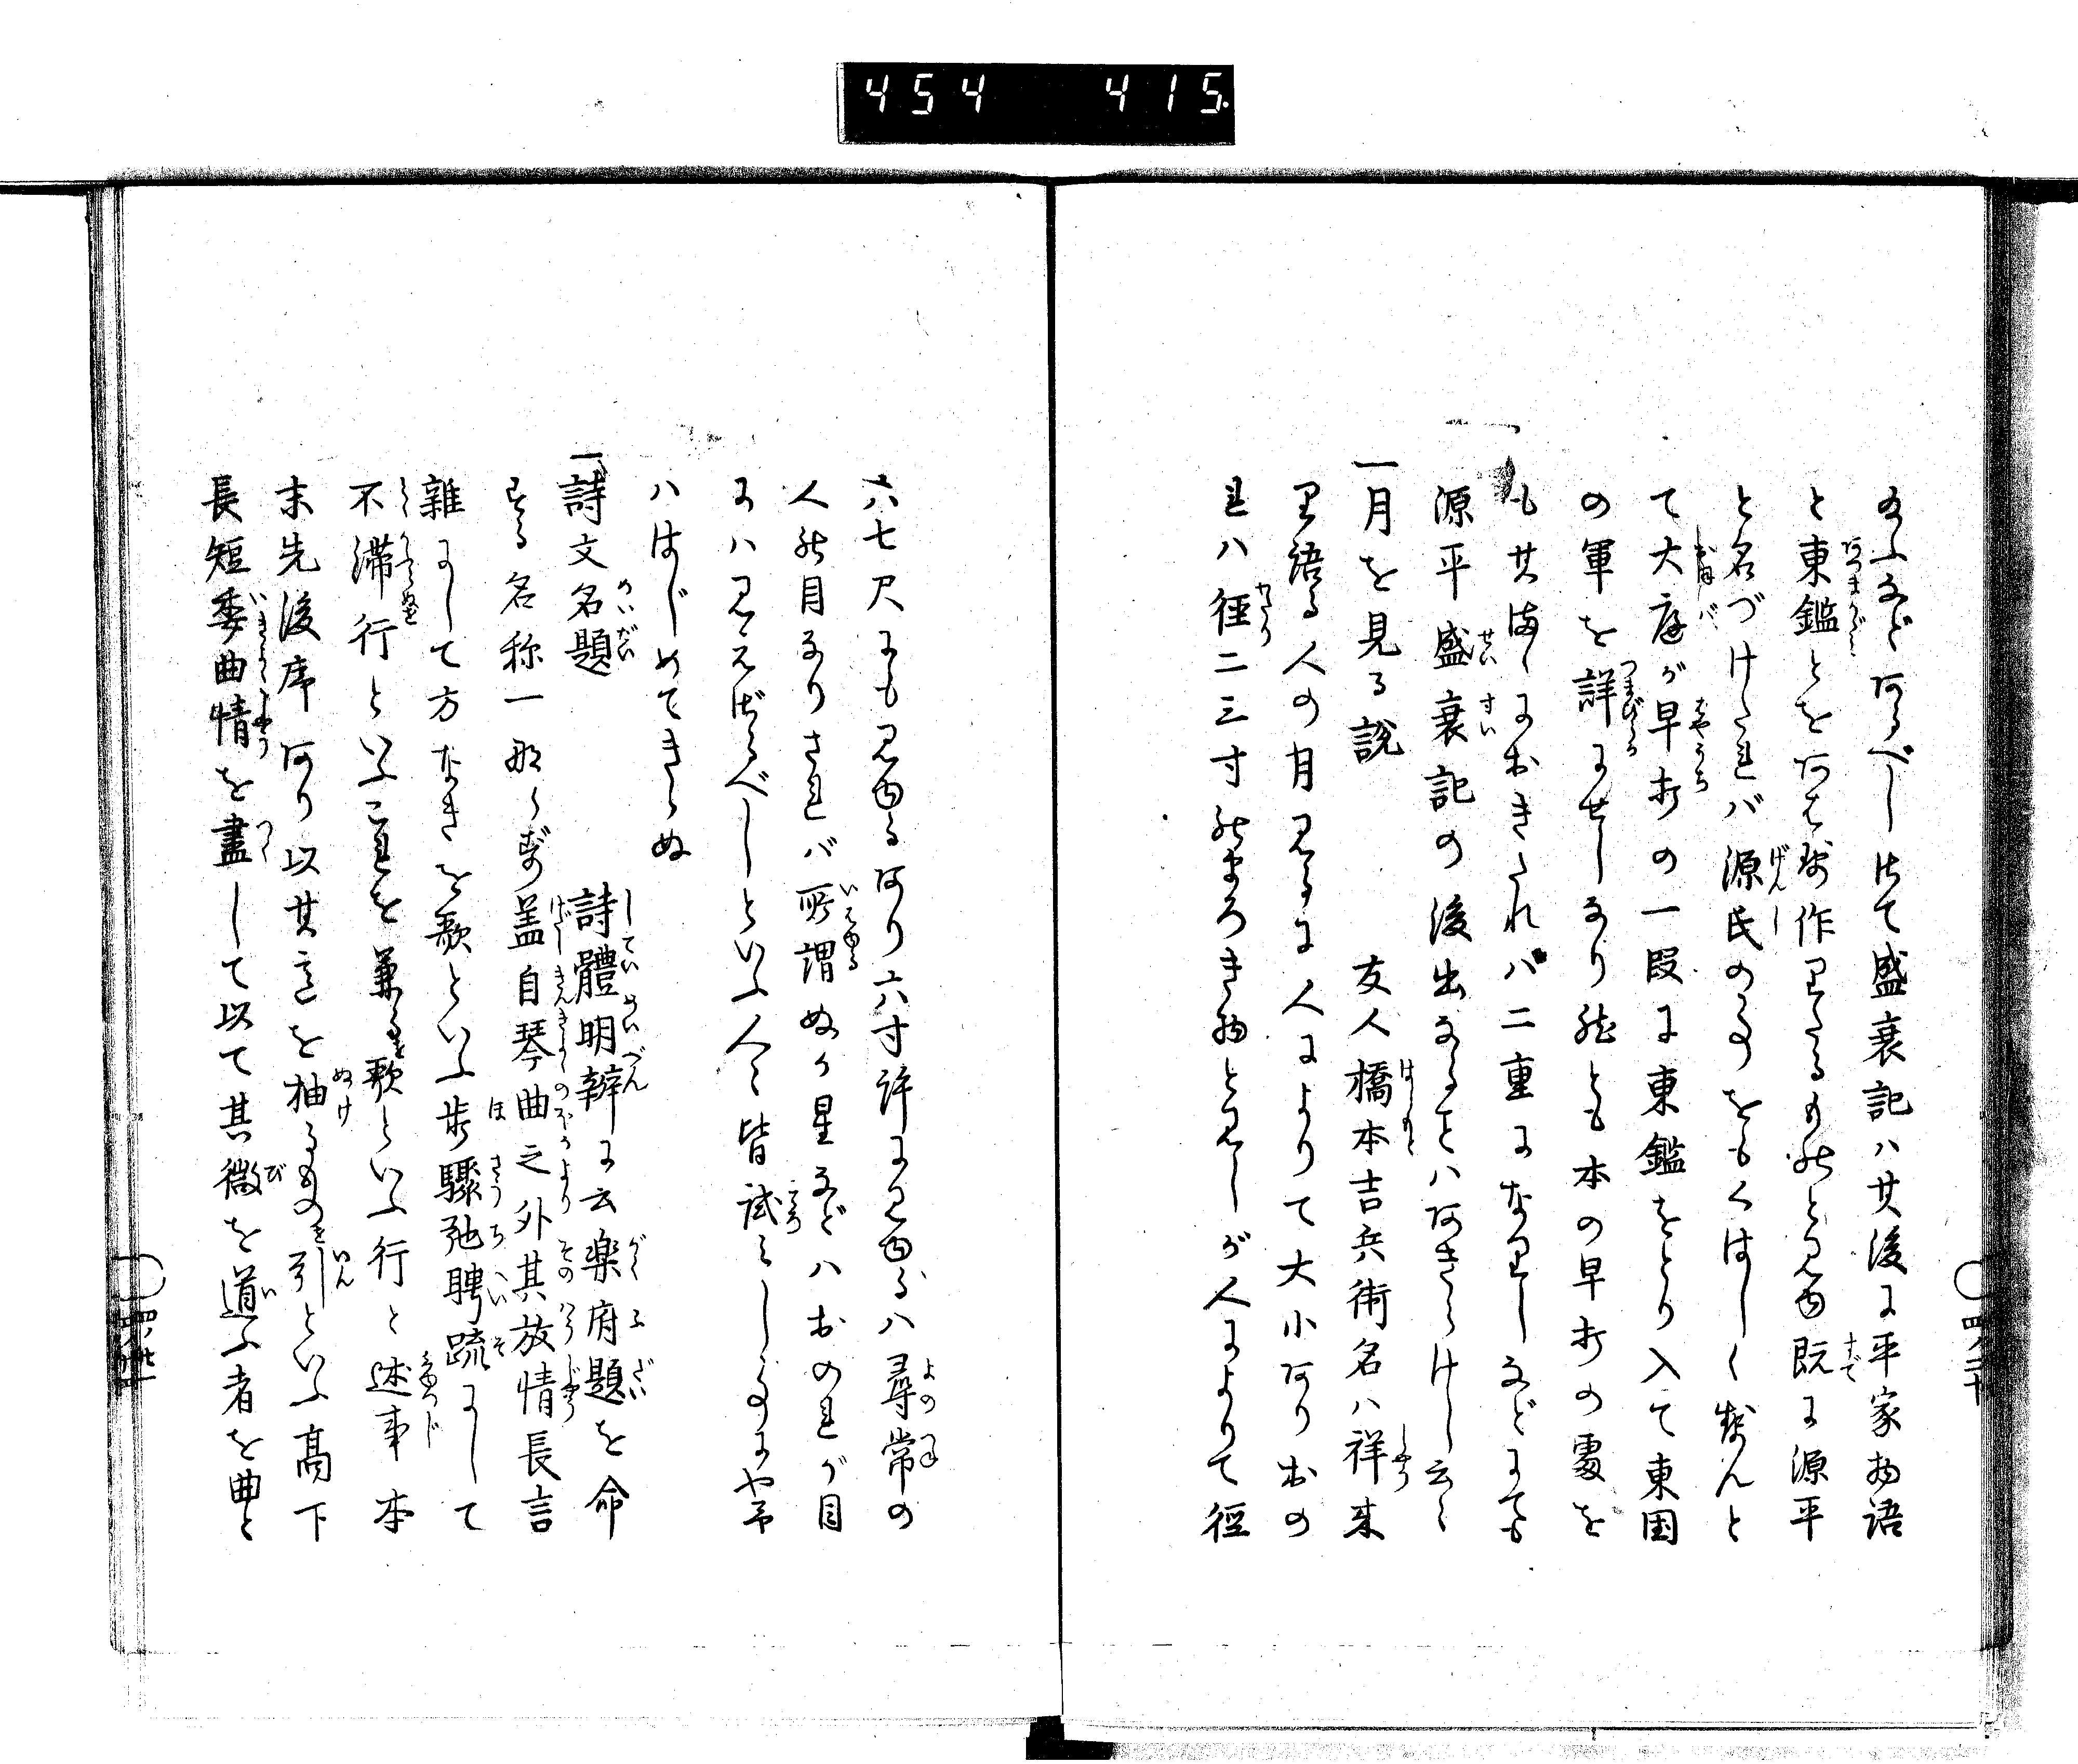 454 415
給ふなどあるべしはて盛衰記ハ其後に平家物語
と東鑑とをあはせ作りたるものと見ゆ既に源平
と名づけたれバ源氏の事をもくはしくせんと
て大庭が早打の一段に東鑑をとり入て東国
の軍を詳にせしなり然とも本の早打の処を
も其まゝにおきたれバ二重になりしなどにても
源平盛衰記の後出なることハあきらけし云々
一月を見る説 友人橋本吉兵衛名ハ祥来
り語る人の月見るに人によりて大小ありおの
れハ径二三寸のまろき物と見しが人によりて径
六七尺にも見ゆるあり六寸許に見ゆるハ尋常の
人の目なりされバ所謂ぬか星などハおのれが目
にハ見えざるべしといふ人々皆試みしことにや予
ハはじめてきゝぬ
一詩文名題 詩體明辯に云楽府題を命
ずる名称一ならず盖自琴曲之外其放情長言
雑にして方なきを歌といふ歩驟弛聘疏にして
不滞行といふこれを兼るを歌といふ行と述事本
末先後序あり以其意を抽るものを引といふ高下
長短委曲情を盡して以て其微を道ふ者を曲と
四ノ三十